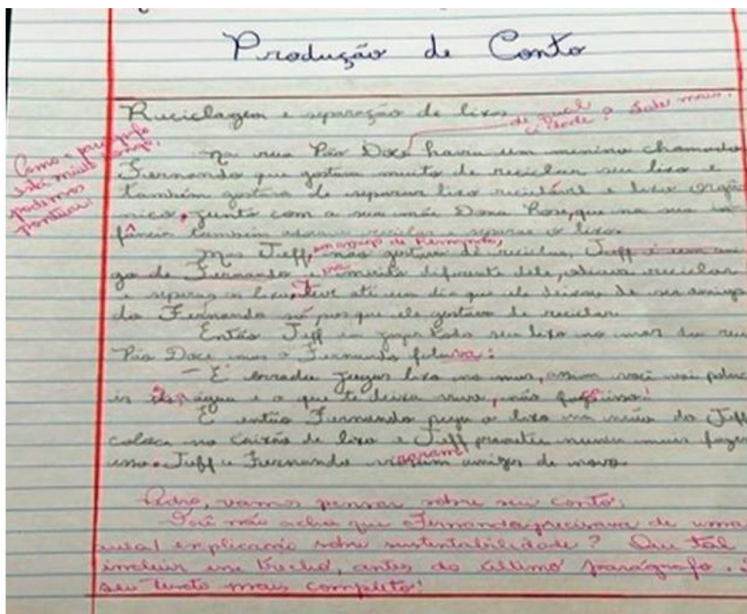 Produção de Conto
Reciclagem e separação de lixo
de qual cidade? Sabe mais.
Como o parágrafo
está muito longo,
podemos
pontuar!
Na rua Pão Doce havia um menino chamado
Fernando que gostava muito de reciclar seu lixo e
também gostava de separar lixo reciclável e lixo orgâ-
nico, junto com a sua mãe Dona Rose, que na sua in-
fância também adorava reciclar e separar o lixo.
Mas Jeff, um amigo de Fernando, não gostava de reciclar, Jeff é um ami-
go de Fernando e muito diferente dele, odiava reciclar
e separar os lixos, teve até um dia que ele deixou de ser amigo
do Fernando só por que ele gostava de reciclar.
Então Jeff ia jogar todo seu lixo no mar da rua
Pão Doce mas o Fernando falava:
— É errado jogar lixo no mar, assim você vai polu-
ir a água e o que te deixa vivo, não faça isso!
E então Fernando pega o lixo da mão do Jeff
coloca no caixão de lixo e Jeff promete nunca mais fazer
isso. Jeff e Fernando viraram amigos de novo.
Pedro, vamos pensar sobre seu conto.
Você não acha que Fernando precisava de uma
explicação sobre sustentabilidade? Que tal
incluir um trecho, antes do último parágrafo.
seu texto mais completo!